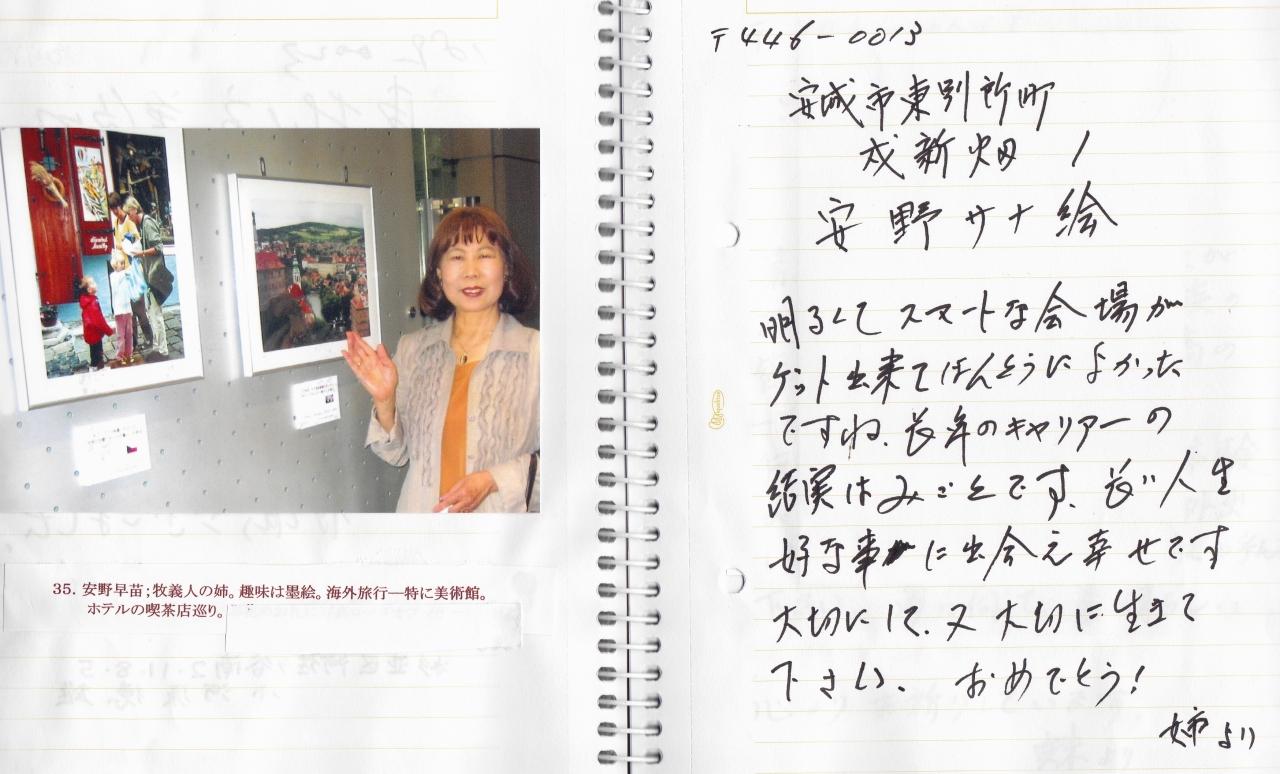 35. 安野早苗；牧義人の姉。趣味は墨絵。海外旅行―特に美術館。
ホテルの喫茶店巡り。
〒446-0013
安城市東別所町
戌新畑 1
安野サナ絵
明るくてスマートな会場が
ゲット出来てほんとうによかった
ですね、長年のキャリアーの
結実はみごとです、長い人生
好な事に出会え幸せです
大切にして、又大切に生きて
下さい、おめでとう!
姉より